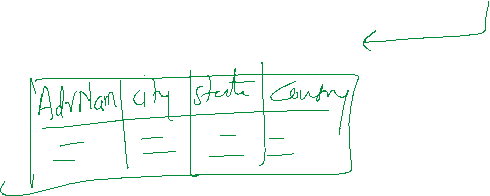 AdvNam City State Country